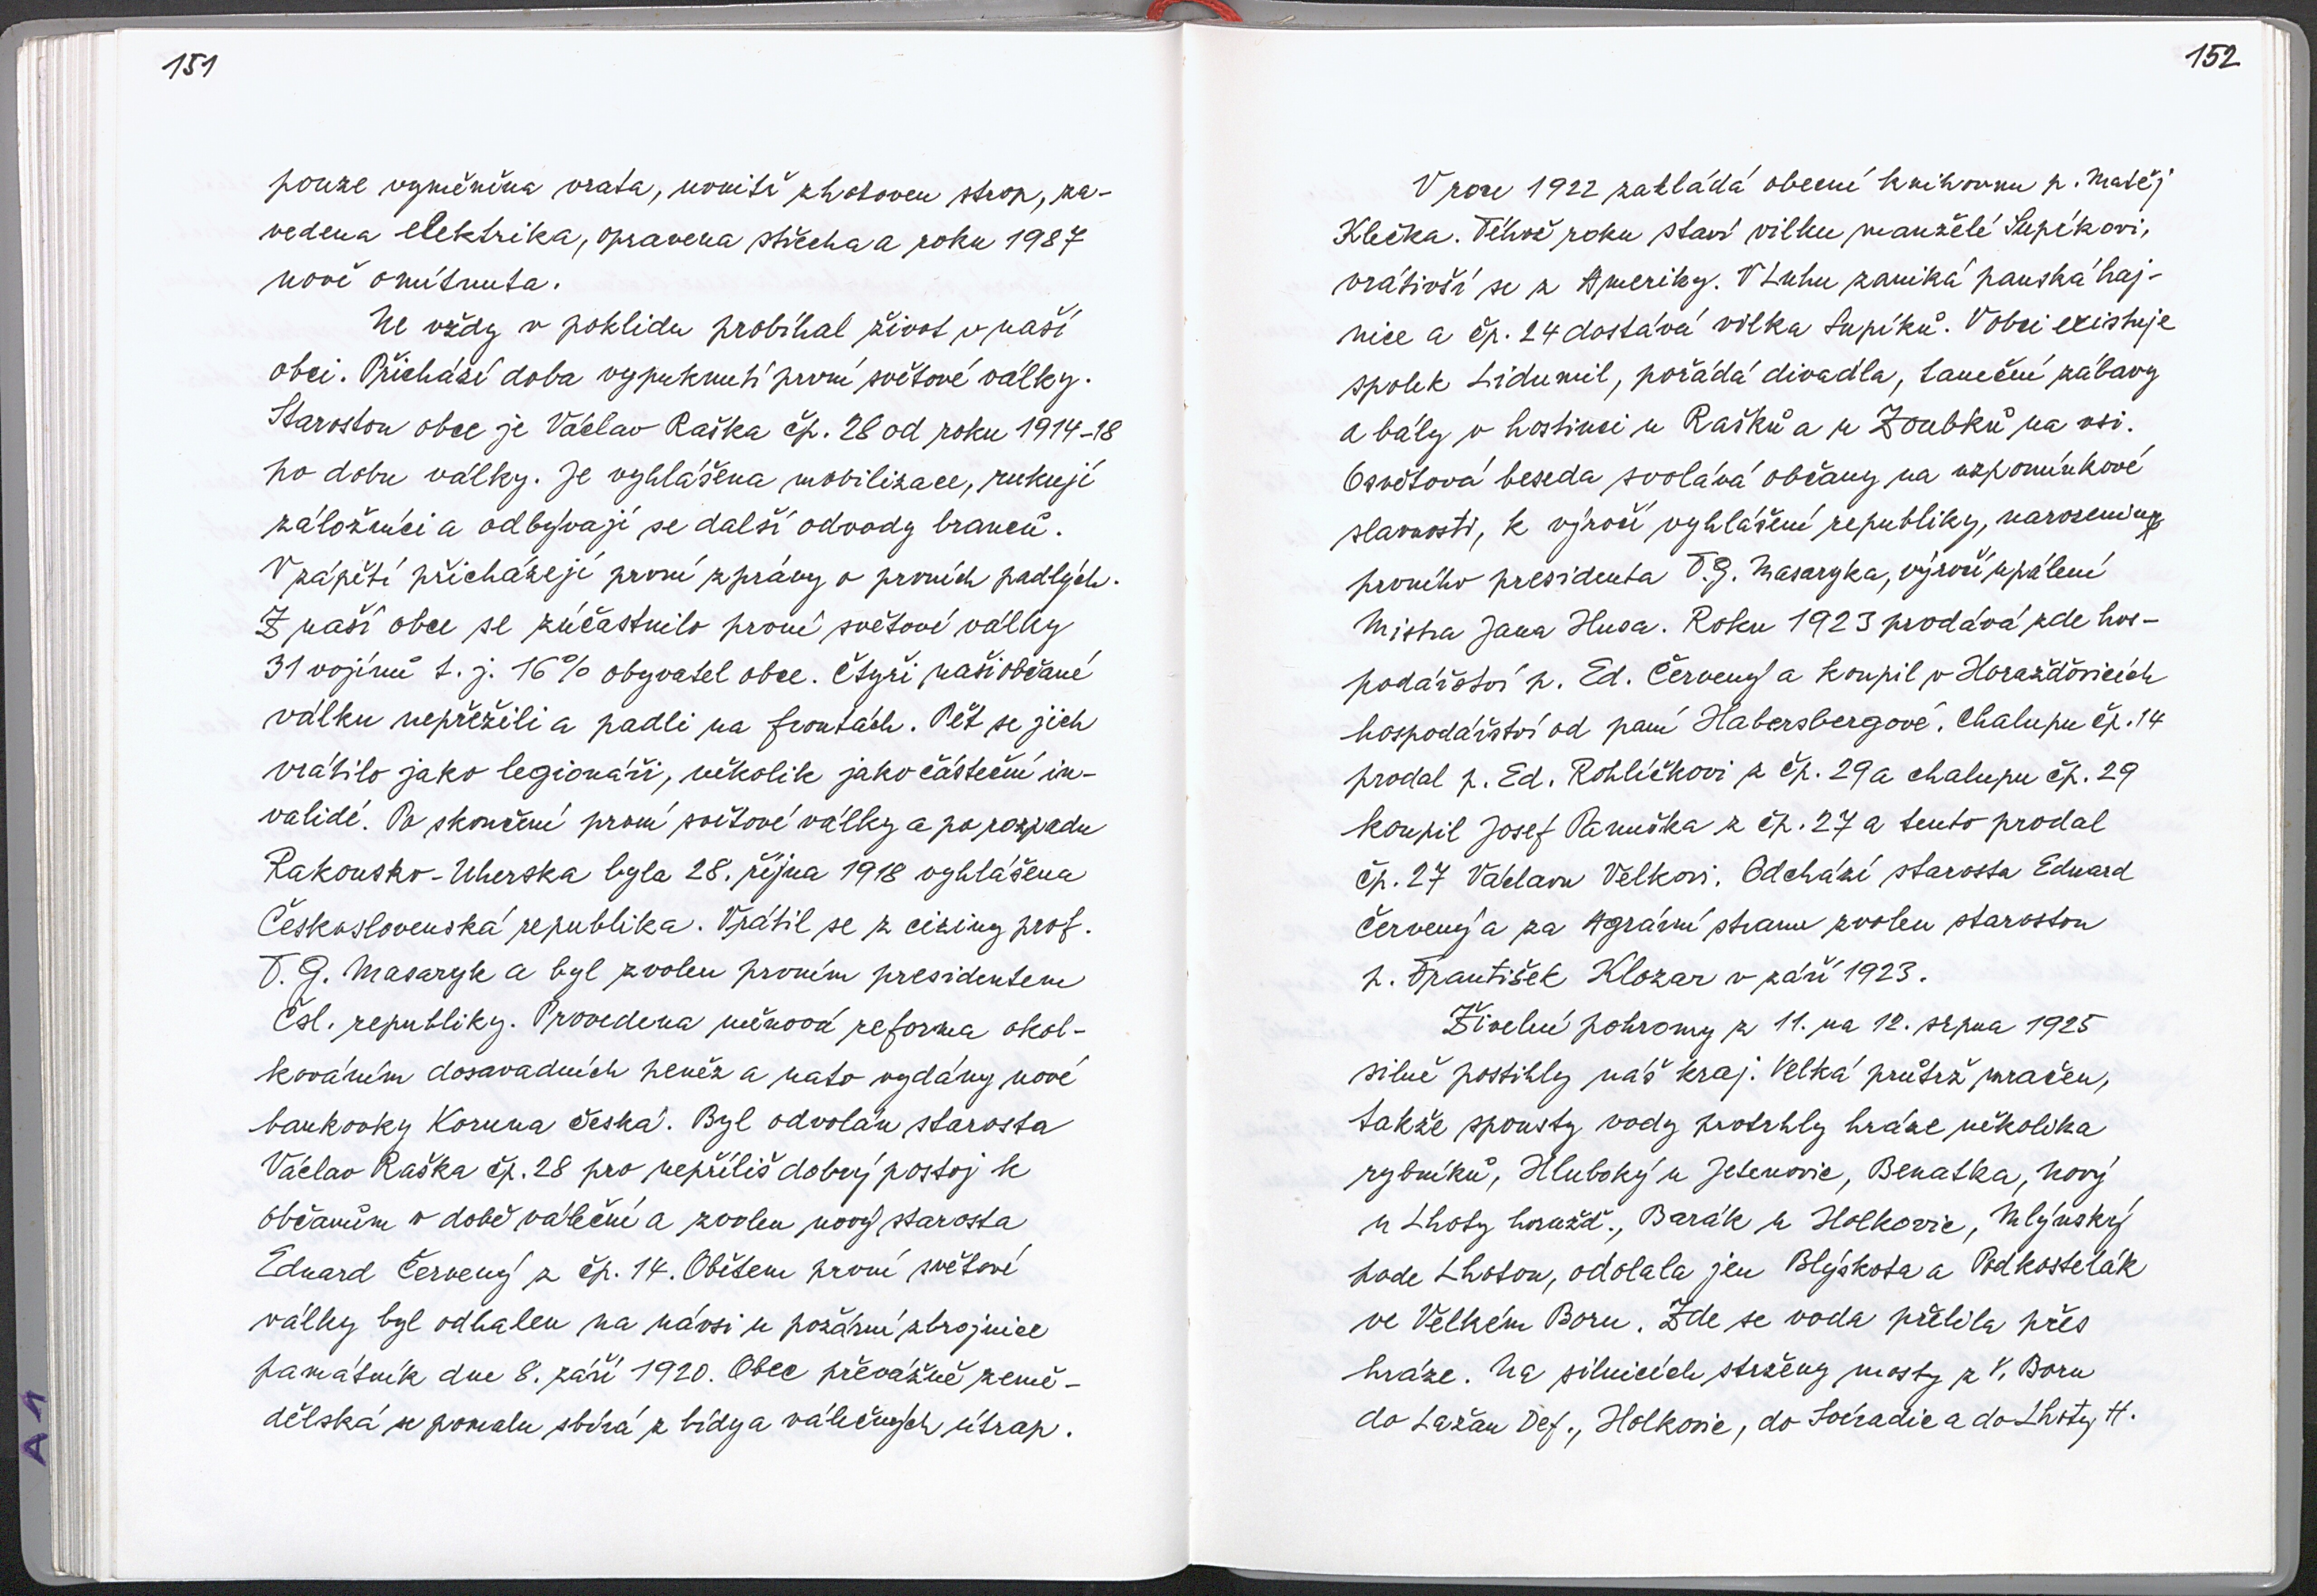 151
pouze vyměněna vrata, uvnitř zhotoven strop, za-
vedena elektrika, opravena střecha a roku 1987
nově omítnuta.
Ne vždy v poklidu probíhal život v naší
obci. Přichází doba vypuknutí první světové války.
Starostou obce je Václav Raška čp. 28 od roku 1914-18
po dobu války. Je vyhlášena mobilizace, rukují
záložníci a odbývají se další odvody branců.
V zápětí přicházejí první zprávy o prvních padlých.
Z naší obce se zúčastnilo první světové války
31 vojínů t. j. 16% obyvatel obce. Čtyři naši občané
válku nepřežili a padli na frontách. Pět se jich
vrátilo jako legionáři, několik jako částeční in-
validé. Po skončení první světové války a po rozpadu
Rakousko-Uherska byla 28. října 1918 vyhlášena
Československá republika. Vrátil se z ciziny prof.
T. G. Masaryk a byl zvolen prvním presidentem
Čsl. republiky. Provedena měnová reforma okol-
kováním dosavadních peněz a nato vydány nové
bankovky Koruna česká. Byl odvolán starosta
Václav Raška čp. 28 pro nepříliš dobrý postoj k
občanům v době válečné a zvolen nový starosta
Eduard Červený z čp. 14. Obětem první světové
války byl odhalen na návsi u požární zbrojnice
památník dne 8. září 1920. Obec převážně země-
dělská se pomalu sbírá z bídy a válečných útrap.
A 1
152
V roce 1922 zakládá obecní knihovnu p. Matěj
Klečka. Téhož roku staví vilku manželé Supíkovi,
vrátivší se z Ameriky. V Luhu zaniká panská háj-
nice a čp. 24 dostává vilka Supíků. V obci existuje
spolek Lidumil, pořádá divadla, taneční zábavy
a bály v hostinci u Rašků a u Zoubků na vsi.
Osvětová beseda svolává občany na vzpomínkové
slavnosti, k výročí vyhlášení republiky, narozeniny
prvního presidenta T. G. Masaryka, výročí upálení
Mistra Jana Husa. Roku 1923 prodává zde hos-
podářství p. Ed. Červený a koupil v Horažďovicích
hospodářství od paní Habersbergové. Chalupu čp. 14
prodal p. Ed. Rohlíčkovi z čp. 29 a chalupu čp. 29
koupil Josef Panuška z čp. 27 a tento prodal
čp. 27 Václavu Velkovi. Odchází starosta Eduard
Červený a za Agrární stranu zvolen starostou
p. František Klozar v září 1923.
Živelné pohromy z 11. na 12. srpna 1925
silně postihly náš kraj. Velká průtrž mračen,
takže spousty vody protrhly hráze několika
rybníků, Hluboký u Jetenovic, Benatka, Nový
u Lhoty horažď., Barák u Holkovic, Mlýnský
pode Lhotou, odolala jen Blýskota a Podkostelák
ve Velkém Boru. Zde se voda přelila přes
hráze. Na silnicích strženy mosty z V. Boru
do Lažan Def., Holkovic, do Svéradic a do Lhoty H.